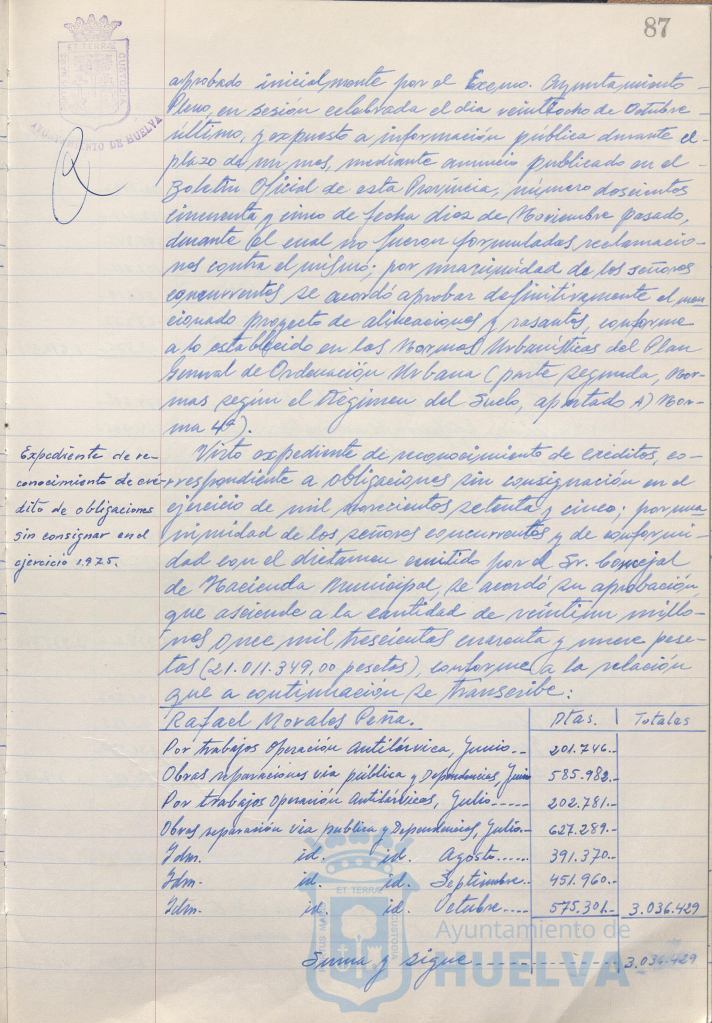 87
ET TERRAE
CUSTODIA
AYUNTAMIENTO DE HUELVA
aprobado inicialmente por el Excmo. Ayuntamiento
Pleno, en sesión celebrada el día veintiocho de Octubre
último, y expuesto a información pública durante el
plazo de un mes, mediante anuncio publicado en el
Boletín Oficial de esta Provincia, número doscientos
cincuenta y cinco de fecha diez de Noviembre pasado,
durante el cual no fueron formuladas reclamacio-
nes contra el mismo; por unanimidad de los señores
concurrentes se acordó aprobar definitivamente el men
cionado proyecto de alineaciones y rasantes, conforme
a lo establecido en las Normas Urbanísticas del Plan
General de Ordenación Urbana (parte segunda, Nor-
mas según el Régimen del Suelo, apartado A) Nor-
ma 4ª).
Expediente de re-
conocimiento de cré-
dito de obligaciones
sin consignar en el
ejercicio 1.975.
Visto expediente de reconocimiento de créditos, co-
rrespondiente a obligaciones sin consignación en el
ejercicio de mil novecientos setenta y cinco; por una
nimidad de los señores concurrentes y de conformi-
dad con el dictamen emitido por el Sr. Concejal
de Hacienda Municipal, se acordó su aprobación,
que asciende a la cantidad de veintiun millo-
nes once mil trescientas cuarenta y nueve pese-
tas (21.011.349,00 pesetas), conforme a la relación
que a continuación se transcribe:
Rafael Morales Peña. Ptas. Totales
Por trabajos operación Antilárvica, Junio.-- 201.746.-
Obras reparaciones via pública y Dependencias, Junio 585.982.-
Por trabajos Operación Antilárvicas, Julio----- 202.781.-
Obras reparación via publica y Dependencias, Julio.- 627.289.-
Idm. id. id. Agosto...... 391.370.-
Idm. id. id. Septiembre.. 451.960.-
Idm. id. id. Octubre.... 575.301.- 3.036.429
Suma y sigue ------------- 3.036.429
ET TERRAE
CUSTODIA
Ayuntamiento de
HUELVA